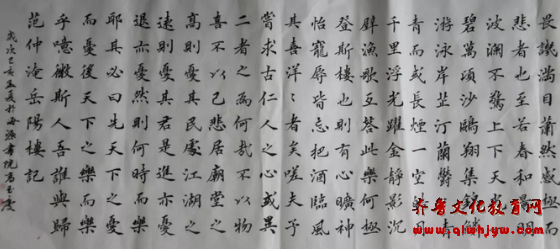 畏譏滿目蕭然感極而
悲者矣至若春和景
波瀾不驚上下天光
碧萬頃沙鷗翔集錦
游泳岸芷汀蘭
青而或長煙一空皓
千里浮光躍金靜影沉
璧漁歌互答此樂何極
登斯樓也則有心曠神
怡寵辱皆忘把酒臨風
其喜洋洋者矣嗟夫予
嘗求古仁人之心或異
二者之為何哉不以物
喜不以己悲居廟堂之
高則憂其民處江湖之
遠則憂其君是進亦憂
退亦憂然則何時而樂
耶其必曰先天下之憂
而憂後天下之樂而樂
乎噫微斯人吾誰與歸
范仲淹岳陽樓記
歲次己亥孟夏書院
齐鲁文化教育网
www.qlwhjyw.com